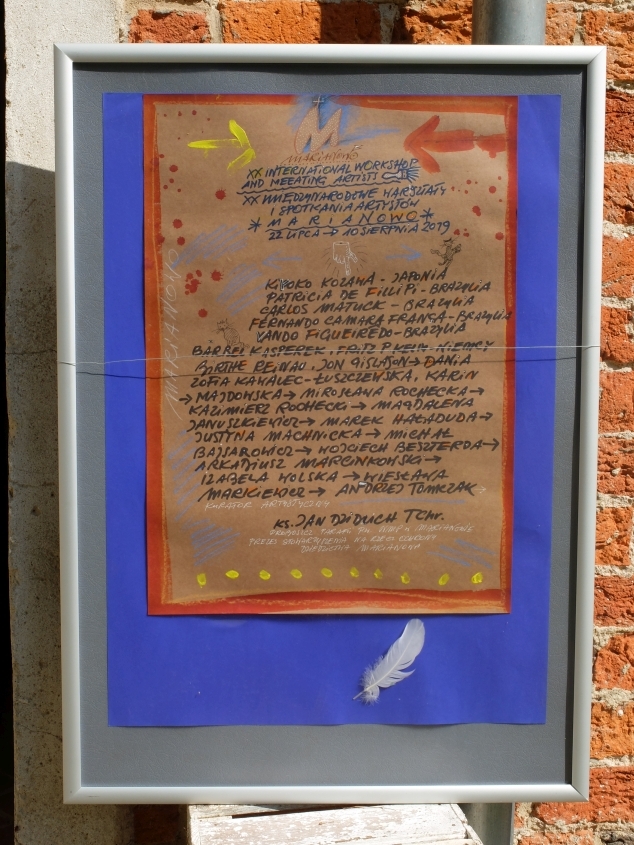 M
MARIANOWO
XX INTERNATIONAL WORKSHOP
AND MEEATING ARTISTS
XX MIĘDZYNARODOWE WARSZTATY
I SPOTKANIA ARTYSTÓW
* MARIANOWO *
22 LIPCA → 10 SIERPNIA 2019
MARIANOWO
KIYOKO KOZAMA - JAPONIA
PATRICIA DE FILLIPI - BRAZYLIA
CARLOS MATUCK - BRAZYLIA
FERNANDO CAMARA FRANÇA - BRAZYLIA
VANDO FIGUEIREDO - BRAZYLIA
BARBEL KASPEREK, FRITZ P. KLEIN - NIEMCY
BIRTHE REINAU, JON GISLASON → DANIA
ZOFIA KAWALEC - ŁUSZCZEWSKA, KARIN
→ MAJDOWSKA → MIROSŁAWA ROCHECKA →
KAZIMIERZ ROCHECKI → MAGDALENA
JANUSZKIEWICZ → MAREK HAŁADUDA →
JUSTYNA MACHNICKA → MICHAŁ
BAJSAROWICZ → WOJCIECH BESZTERDA →
ARKADIUSZ MARCINKOWSKI →
IZABELA WOLSKA → WIESŁAWA
MARKIEWICZ → ANDRZEJ TOMCZAK
KURATOR ARTYSTYCZNY
KS. JAN DZIDUCH TChr.
PROBOSZCZ PARAFII MARIANOWO
PREZES STOWARZYSZENIA NA RZECZ OCHRONY
DZIEDZICTWA MARIANOWA